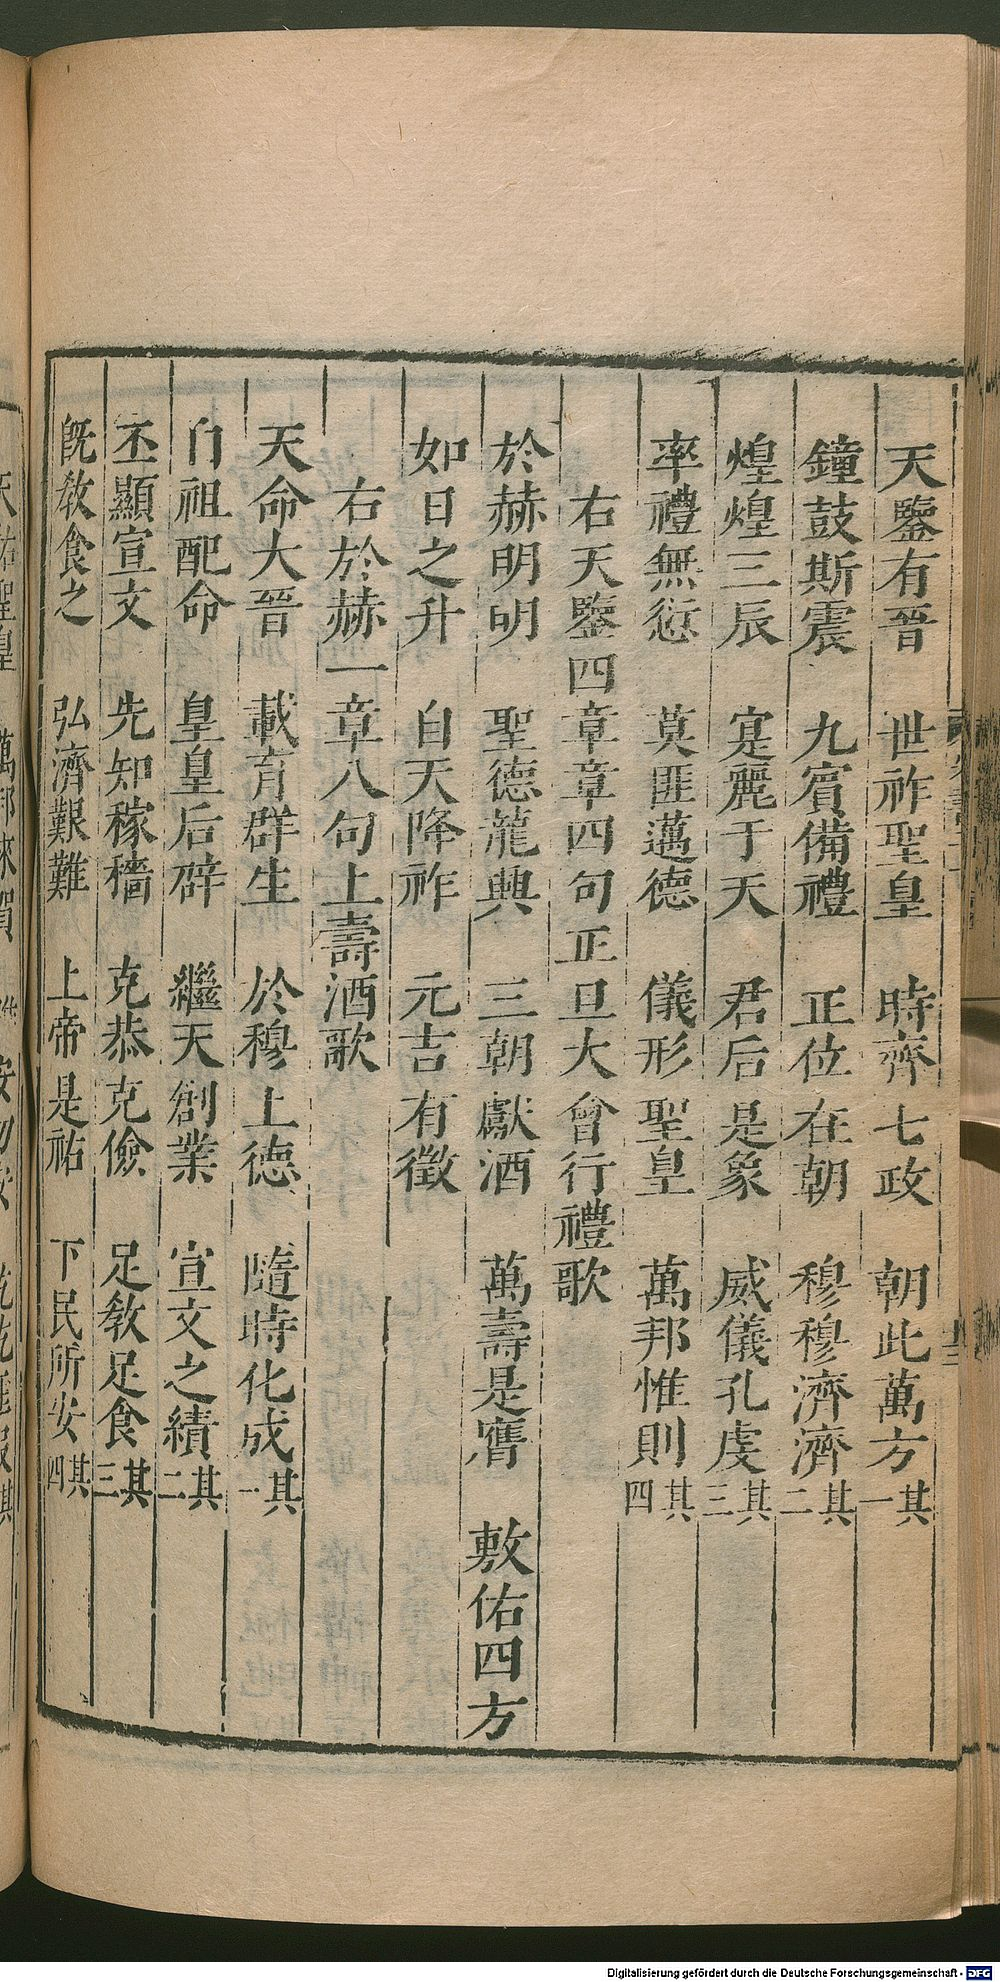 天鑒有晉　世祚聖皇　時齊七政　朝此萬方其一
鐘鼓斯震　九賓備禮　正位在朝　穆穆濟濟其二
煌煌三辰　寔麗于天　君后是象　威儀孔虔其三
率禮無愆　莫匪邁德　儀形聖皇　萬邦惟則其四
右天鑒四章章四句正旦大會行禮歌
於赫明明　聖德龍興　三朝獻酒　萬壽是膺　敷佑四方
如日之升　自天降祚　元吉有徵
右於赫一章八句上壽酒歌
天命大晉　載育群生　於穆上德　隨時化成其一
自祖配命　皇皇后辟　繼天創業　宣文之績其二
丕顯宣文　先知稼穡　克恭克儉　足教足食其三
既教食之　弘濟艱難　上帝是祐　下民所安其四
天祐聖皇　萬邦來賀　安勿安　乾乾匪暇其
Digitalisierung gefördert durch die Deutsche Forschungsgemeinschaft - DFG